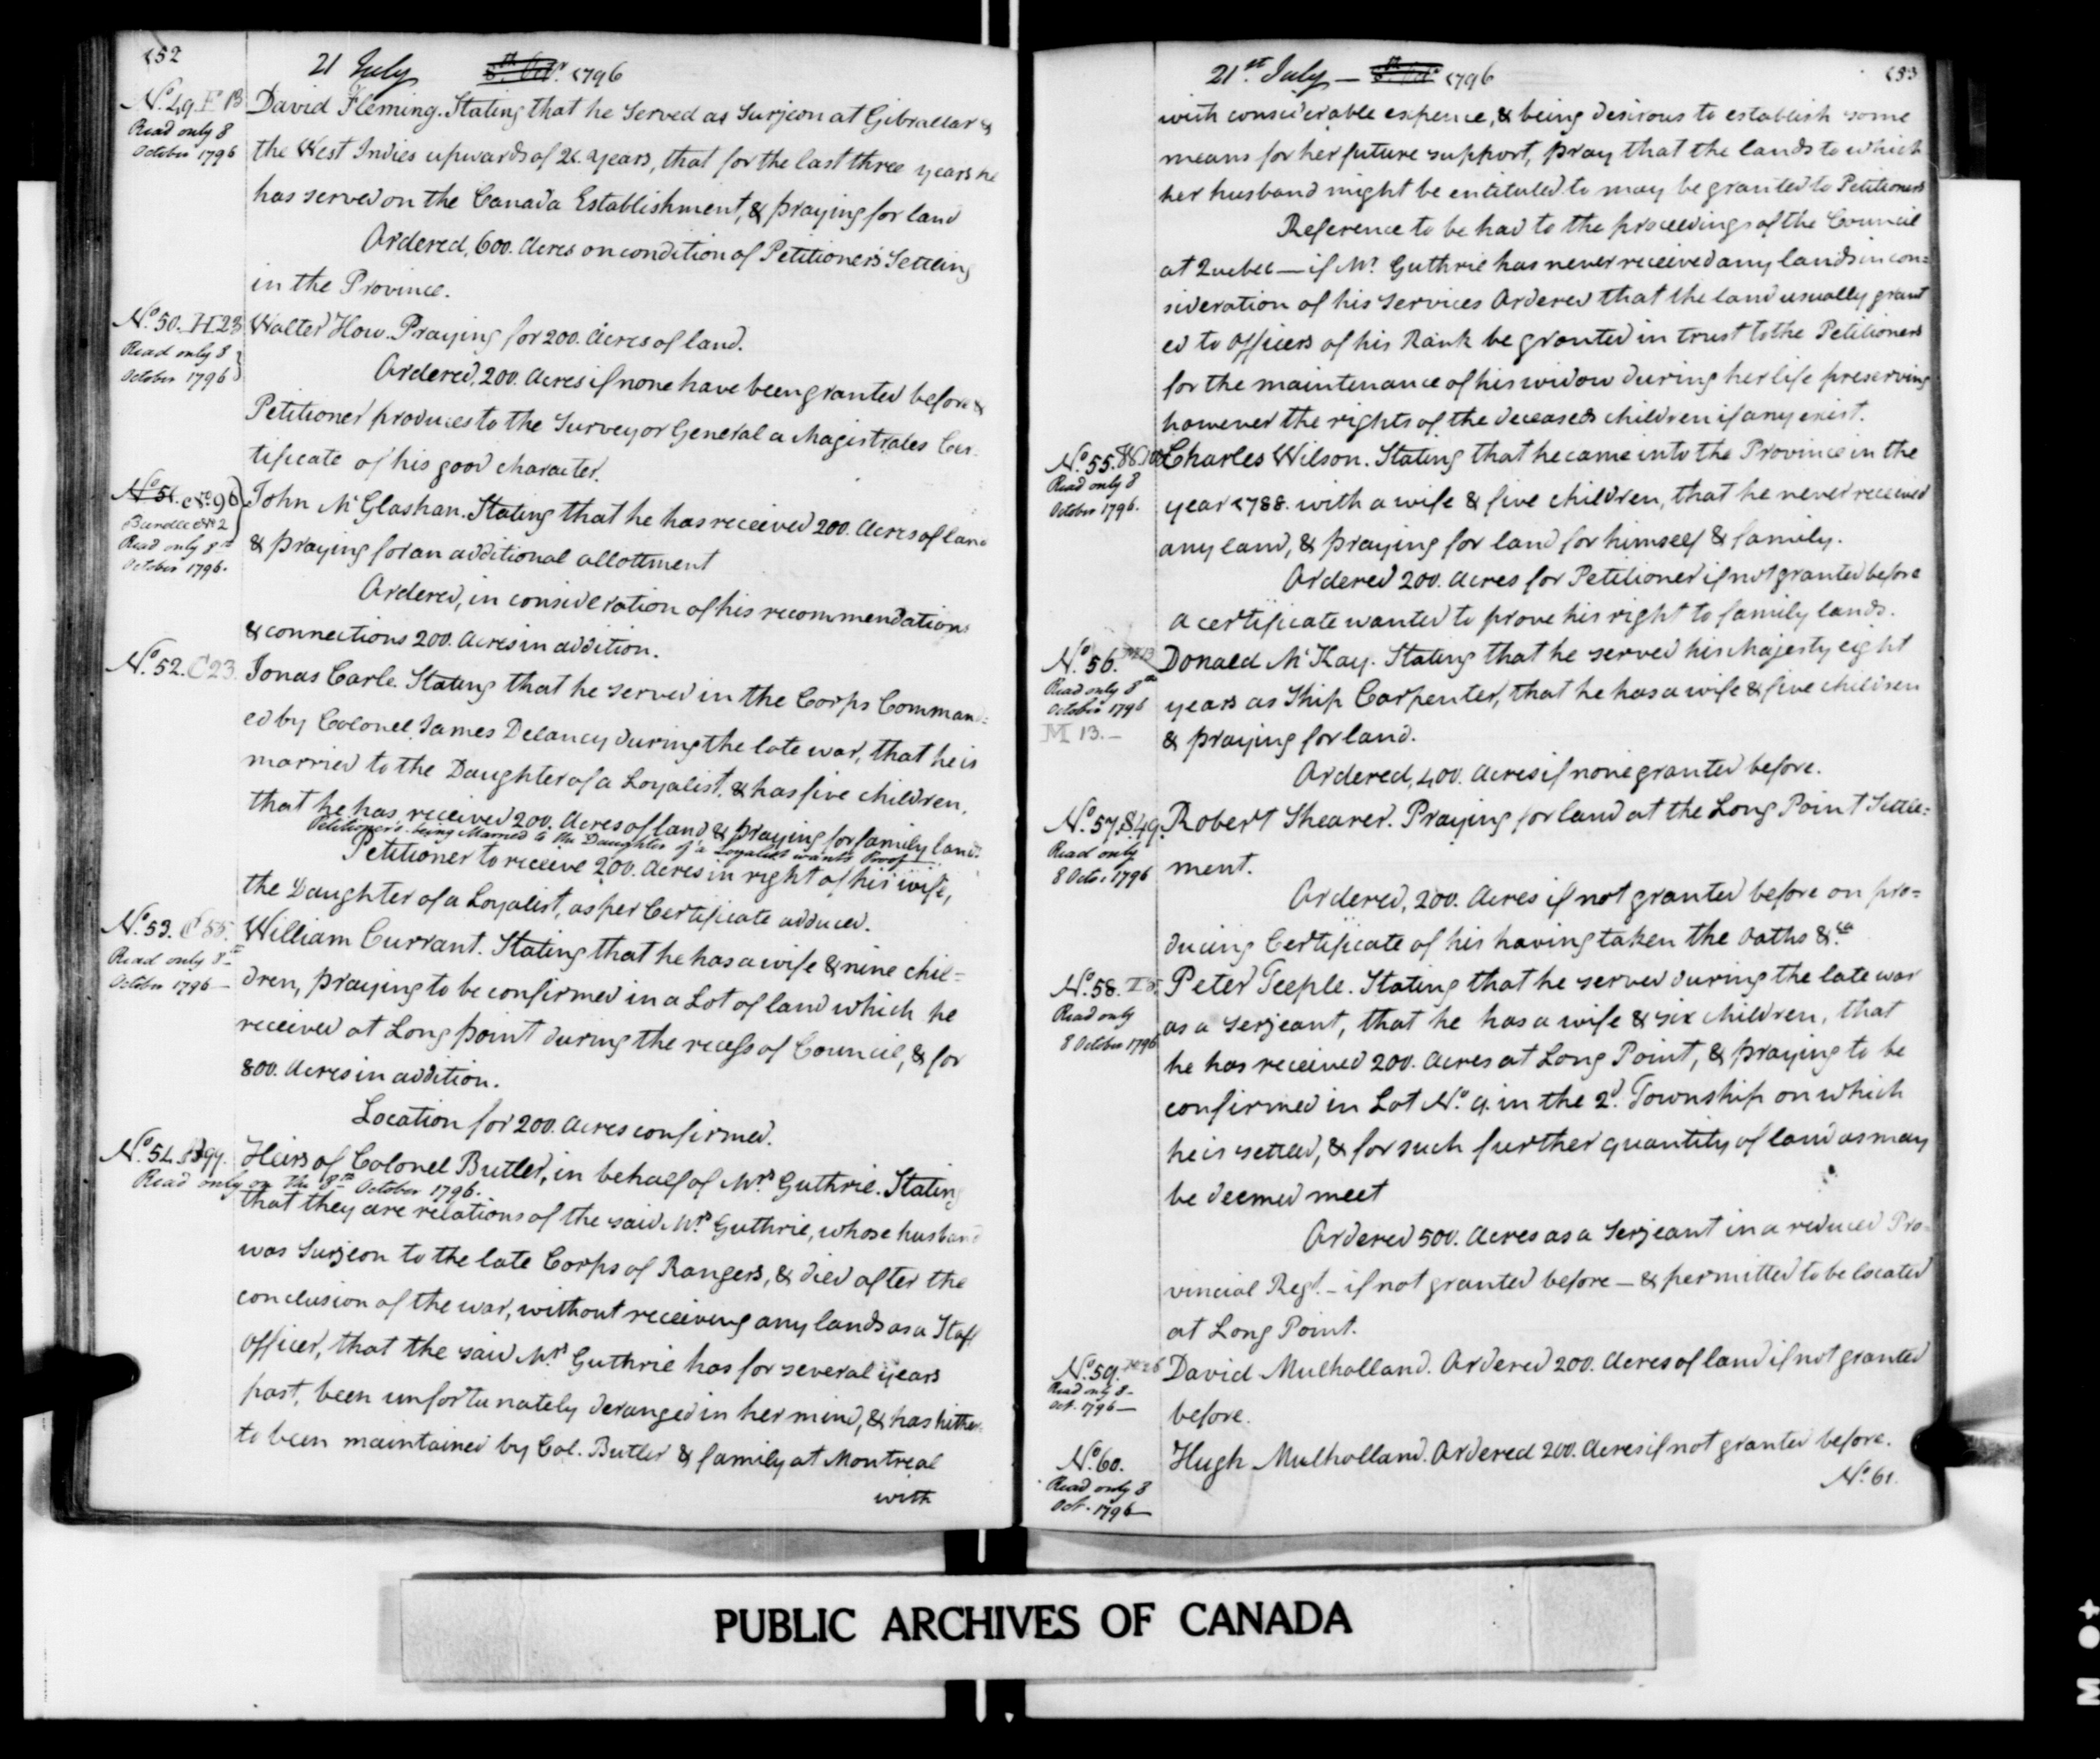 152
21 July 8th Octr. 1796
No. 49. F 13
Read only 8
October 1796
David Fleming. Stating that he served as Surjeon at Gibraltar &
the West Indies upwards of 21. years, that for the last three years he
has served on the Canada Establishment, & praying for land
Ordered, 600. Acres on condition of Petitioner's Settling
in the Province.
No. 50. H 23
Read only 8
October 1796
Walter How. Praying for 200. Acres of land.
Ordered, 200. Acres if none have been granted before &
Petitioner produces to the Surveyor General a Magistrates Cer-
tificate of his good character.
No. 51. No. 96
Bundle No. 2
Read only 8th
October 1796.
John McGlashan. Stating that he has received 200. Acres of land
& praying for an additional allottment
Ordered, in consideration of his recommendations
& connections 200. Acres in addition.
No. 52. C 23.
Jonas Carle. Stating that he served in the Corps Command=
ed by Colonel James Delancy during the late war, that he is
married to the Daughter of a Loyalist, & has five children,
that he has received 200. Acres of land & praying for family lands
Petitioner's being Married to the Daughter of a Loyalist wants Proof
Petitioner to receive 200. Acres in right of his wife,
the Daughter of a Loyalist, as per Certificate adduced.
No. 53. C 55.
Read only 8th
October 1796 —
William Currant. Stating that he has a wife & nine chil=
dren, praying to be confirmed in a Lot of land which he
received at Long point during the recess of Council, & for
800. Acres in addition.
Location for 200. Acres confirmed.
No. 54. B 99.
Read only on the 8th October 1796.
Heirs of Colonel Butler, in behalf of Mrs. Guthrie. Stating
that they are relations of the said Mrs. Guthrie, whose husband
was Surjeon to the late Corps of Rangers, & died after the
conclusion of the war, without receiving any lands as a Staff
Officer, that the said Mrs. Guthrie has for several years
past, been unfortunately deranged in her mind, & has hither-
to been maintained by Col. Butler & family at Montreal
with
21st. July — 8th Octr 1796
153
with considerable expence, & being desirous to establish some
means for her future support, pray that the lands to which
her husband might be entituled to may be granted to Petitioners
Reference to be had to the proceedings of the Council
at Quebec — if Mr. Guthrie has never received any lands in con=
sideration of his services Ordered that the land usually grant
ed to Officers of his Rank be granted in trust to the Petitioners
for the maintenance of his widow during her life preserving
however the rights of the deceaseds children if any exist.
No. 55.
Read only 8
October 1796.
Charles Wilson. Stating that he came into the Province in the
year 1788. with a wife & five children, that he never received
any land, & praying for land for himself & family.
Ordered 200. Acres for Petitioner if not granted before
a certificate wanted to prove his right to family lands.
No. 56. M 13
Read only 8th
October 1796
M 13. —
Donald McKay. Stating that he served his Majesty eight
years as Ship Carpenter, that he has a wife & five children
& praying for land.
Ordered, 400. Acres if none granted before.
No. 57. S 49.
Read only
8 Octo. 1796
Robert Shearer. Praying for land at the Long Point Settle=
ment.
Ordered, 200. Acres if not granted before on pro=
ducing Certificate of his having taken the Oaths &ca
No. 58.
Read only
8 October 1796
Peter Teeple. Stating that he served during the late war
as a Serjeant, that he has a wife & six children, that
he has received 200. Acres at Long Point, & praying to be
confirmed in Lot No. 9. in the 2d. Township on which
he is settled, & for such further quantity of land as may
be deemed meet
Ordered 500. Acres as a Serjeant in a reduced Pro=
vincial Regt. – if not granted before — & permitted to be located
at Long Point.
No. 59.
Read only 8 –
Oct. 1796 —
David Mulholland. Ordered 200. Acres of land if not granted
before.
No. 60.
Read only 8
Oct. 1796 —
Hugh Mulholland. Ordered 200. Acres if not granted before.
No. 61.
PUBLIC ARCHIVES OF CANADA